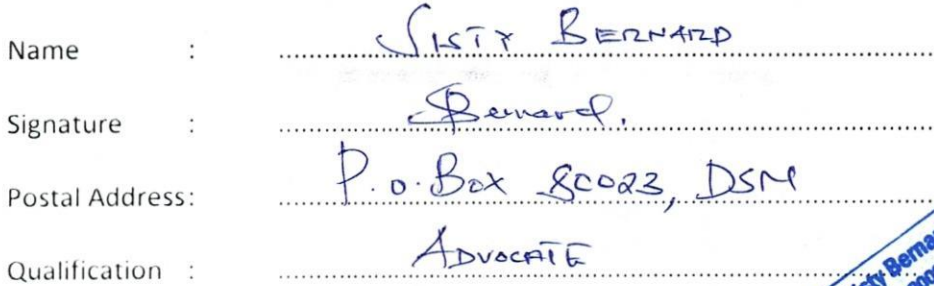 Name : SISTY BERNARD
Signature : SBernard.
Postal Address: P.O. Box 80023, DSM
Qualification : ADVOCATE